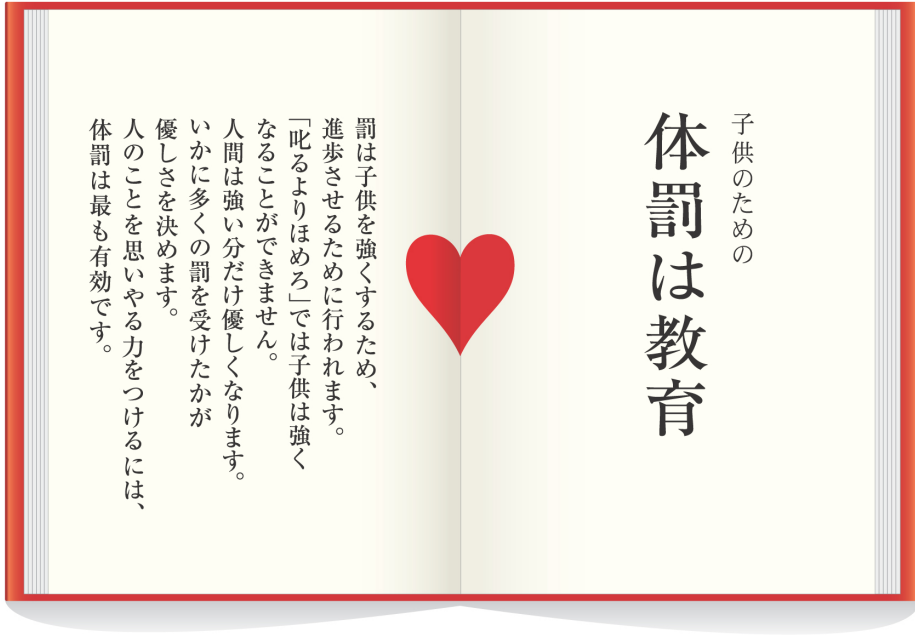 子供のための
体罰は教育
罰は子供を強くするため、
進歩させるために行われます。
「叱るよりほめろ」では子供は強く
なることができません。
人間は強い分だけ優しくなります。
いかに多くの罰を受けたかが
優しさを決めます。
人のことを思いやる力をつけるには、
体罰は最も有効です。